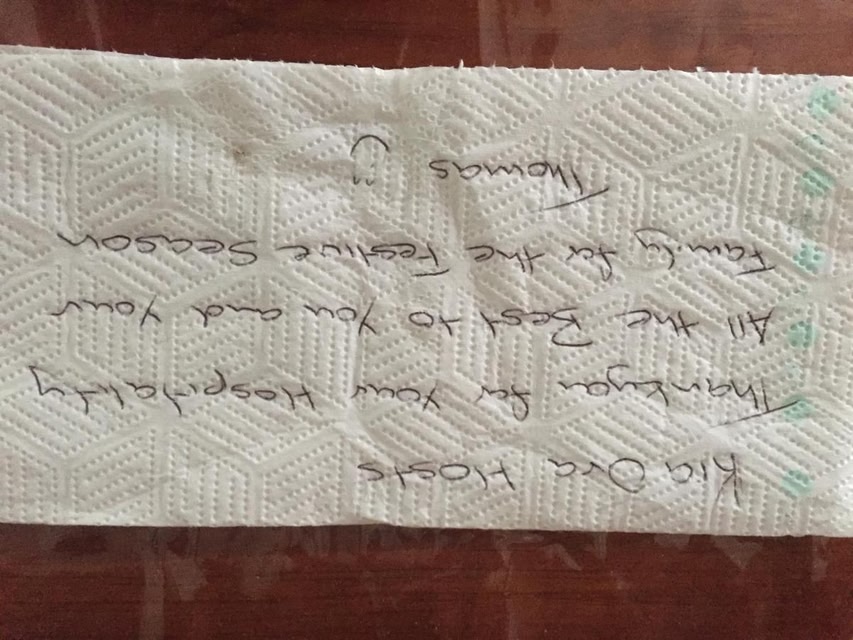 Kia Ora Hosts
Thankyou for Your Hospitality
All the Best to You and Your
Family for the Festive Season
Thomas